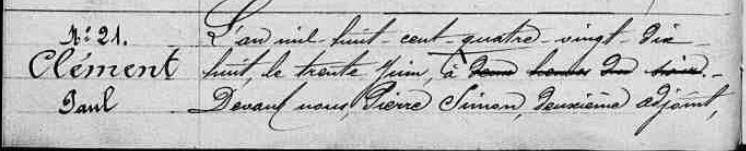 N° 21.
Clément
Paul
L'an mil-huit-cent-quatre-vingt-dix-
huit, le trente Juin, à deux heures du soir.-
Devant nous, Pierre Simon, deuxième adjoint,